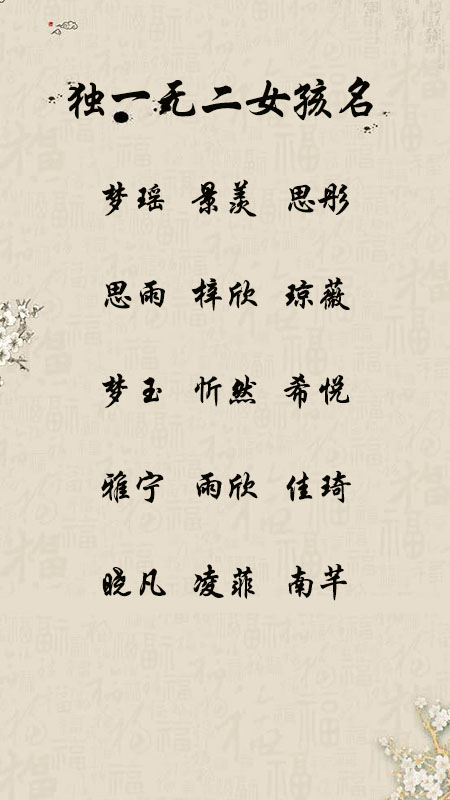 独一无二女孩名
梦瑶 景羡 思彤
思雨 梓欣 琼薇
梦玉 忻然 希悦
雅宁 雨欣 佳琦
晓凡 凌菲 南芊